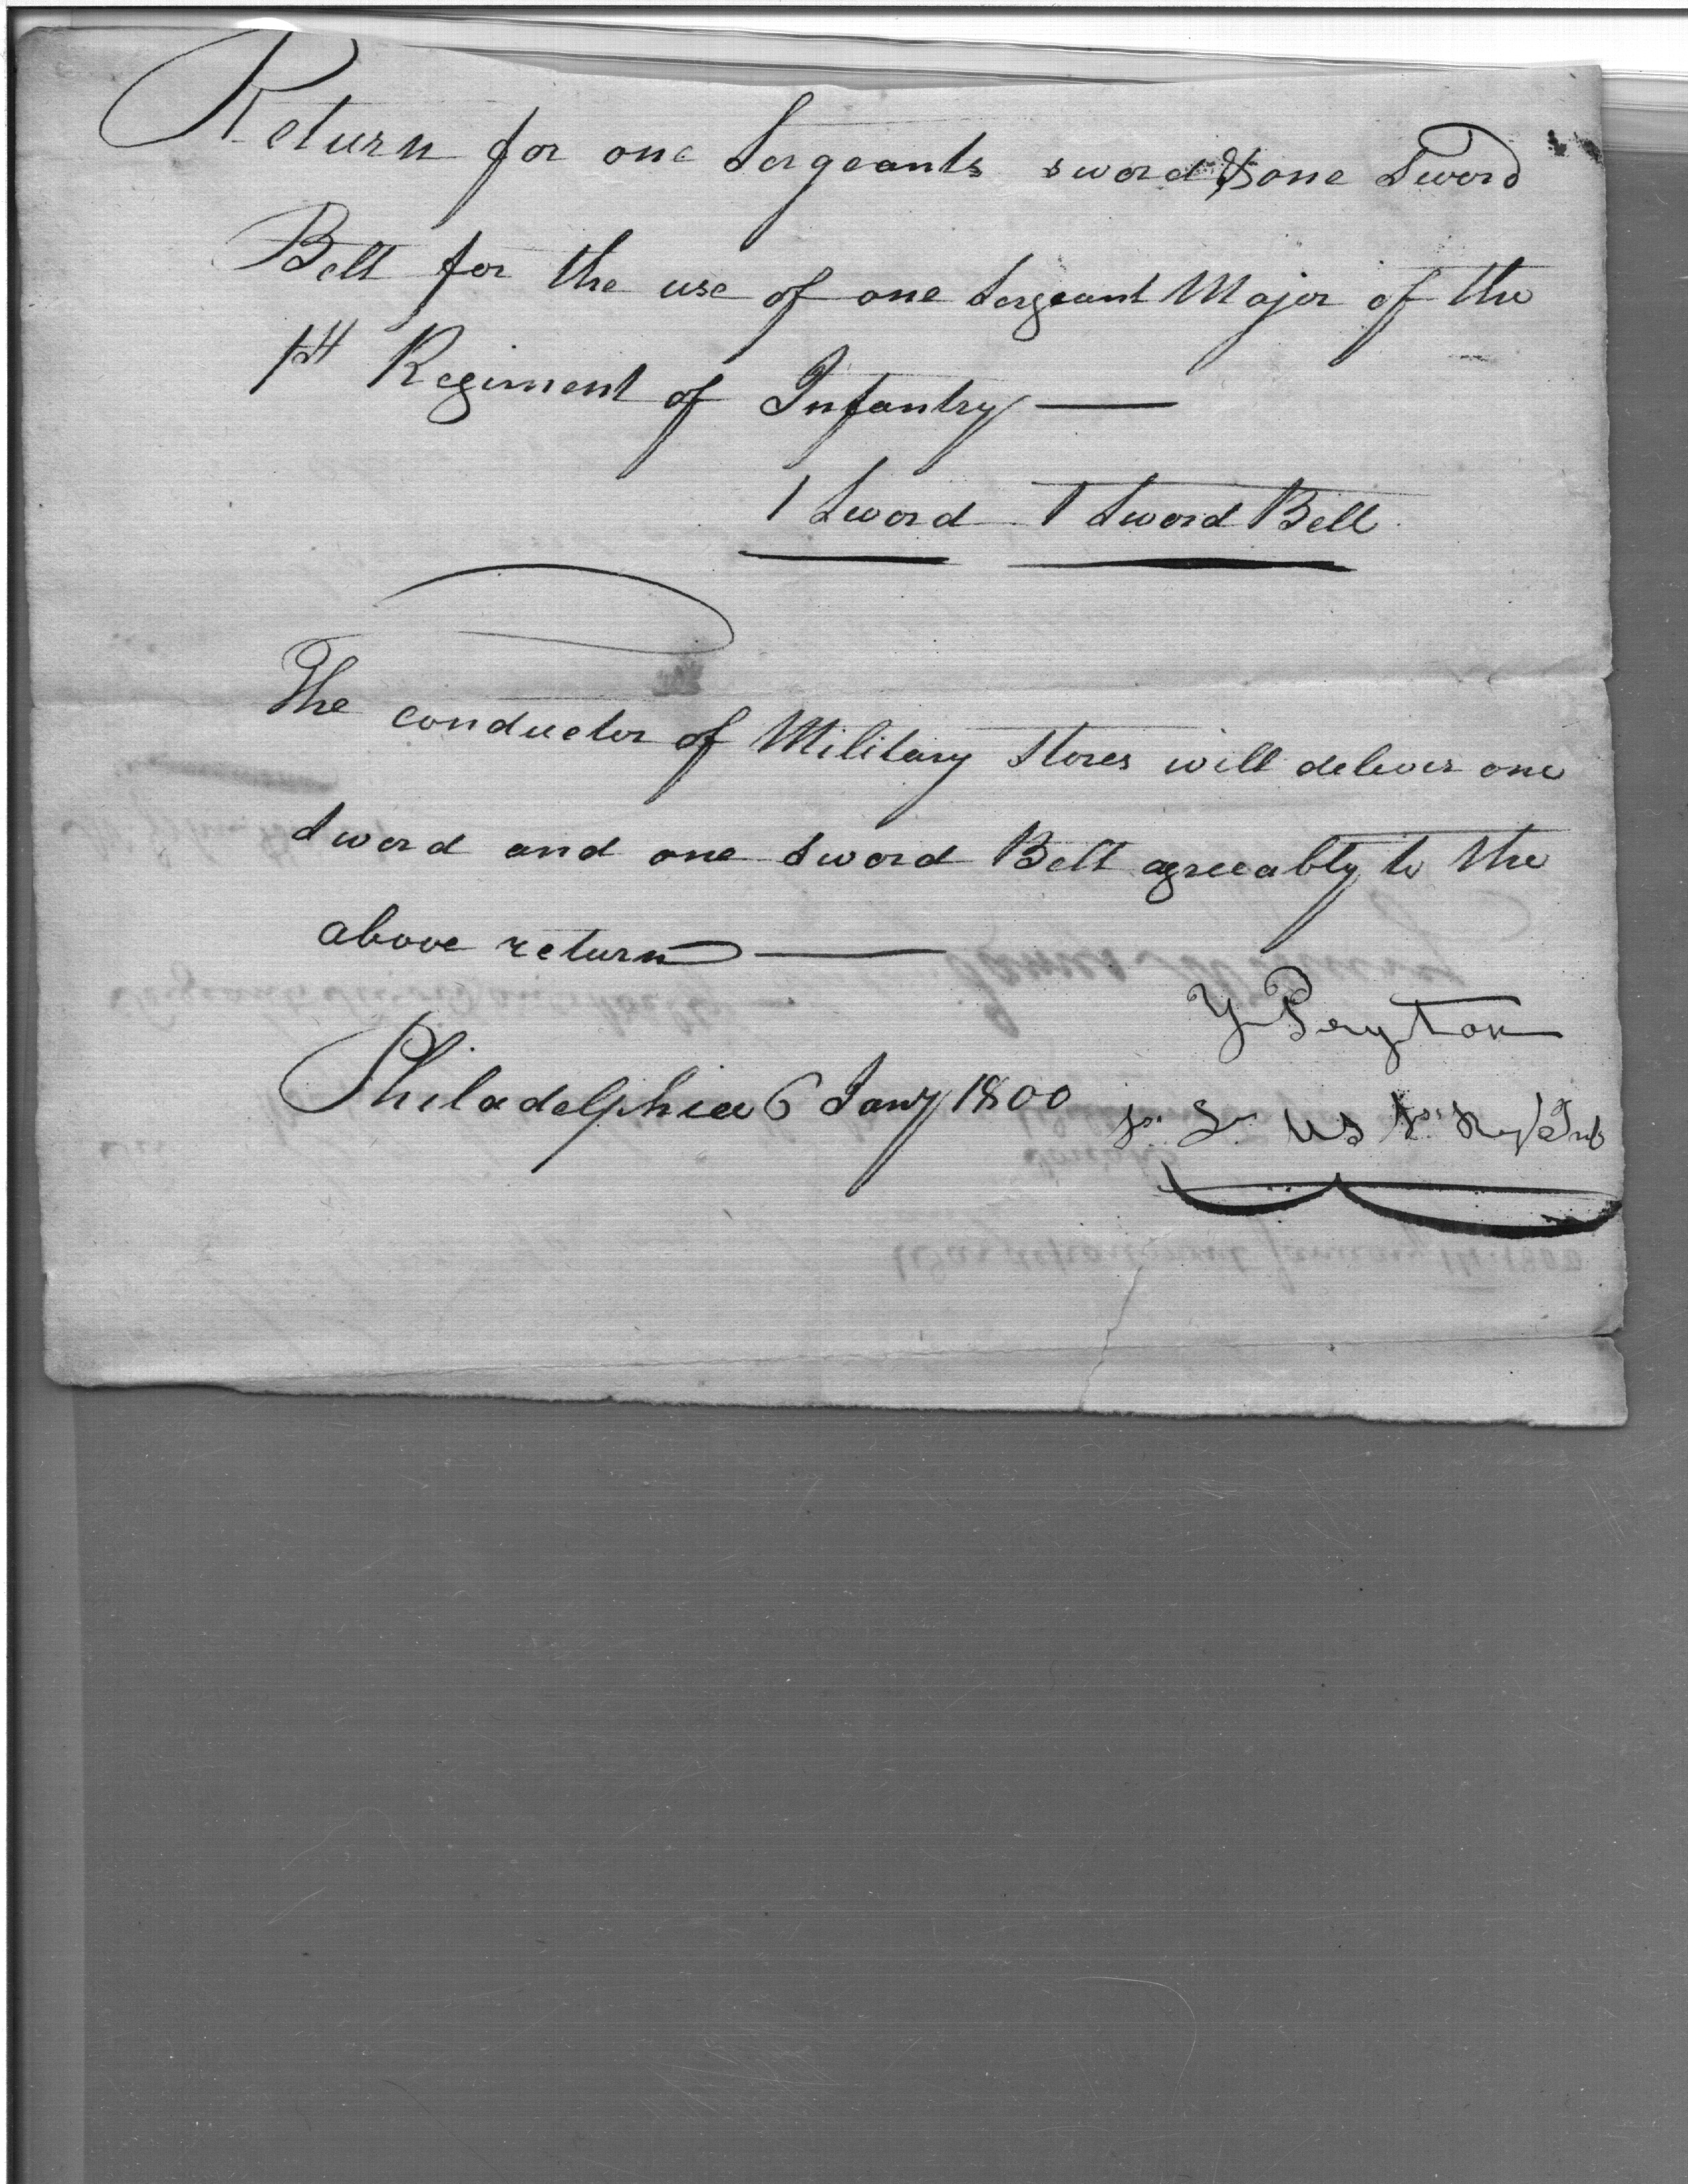 Return for one Sergeants sword & one Sword
Belt for the use of one Sergeant Major of the
1st Regiment of Infantry —
1 Sword 1 Sword Belt
The conductor of Military Stores will deliver one
Sword and one Sword Belt agreeably to the
above return —
Y Peyton
Philadelphia 6 Jany 1800
US 1st Regt Inf